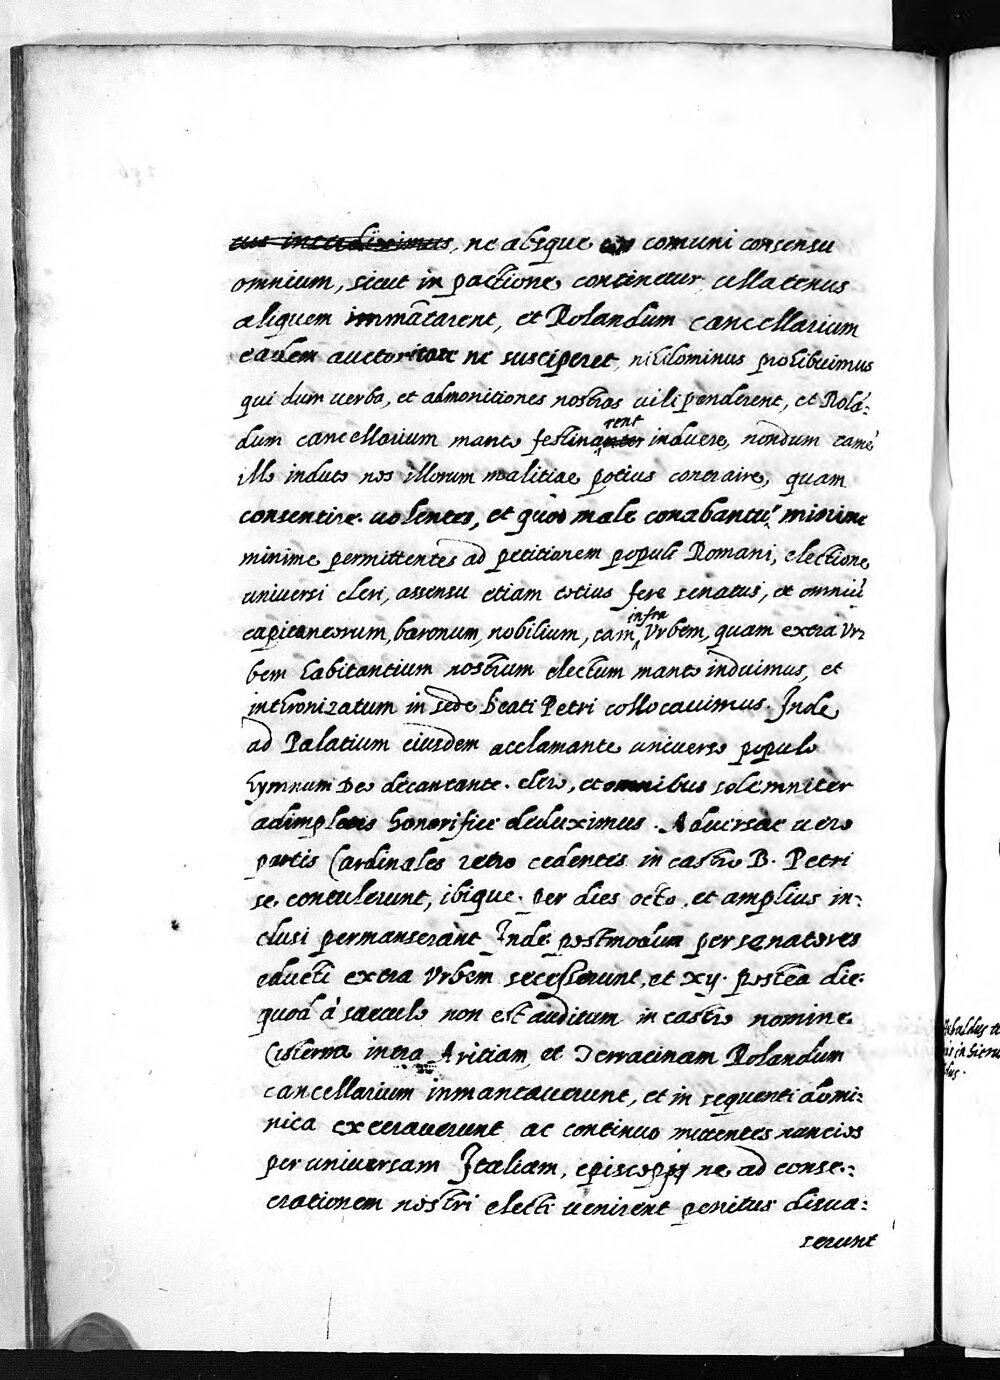 tus interdiximus, ne absque eo comuni consensu
omnium, sicut in pactione continetur ullatenus
aliquem inmãtarent, et Rolandum cancellarium
eadem auctoritate ne susciperet, nihilominus prohibuimus
qui dum uerba, et admonitiones nostras uilipenderent, et Rolã=
dum cancellarium manto festinanter rent induere, nondum tamẽ
illo induto nos illorum malitiae potius contraire, quam
consentire uolentes, et quod male conabantur minime
minime permittentes ad petitionem populi Romani, electione
uniuersi cleri, assensu etiam totius fere senatus, et omniũ
capitaneorum, baronum, nobilium, tam infra Vrbem, quam extra Vr=
bem habitantium nostrum electum manto induimus, et
inthronizatum in sede beati Petri collocauimus. Inde
ad Palatium eiusdem acclamante uniuerso populo
hymnum Deo decantante clero, et omnibus solemniter
adimpletis honorifice deduximus. Aduersae uero
partis Cardinales retro cedentes in castro B. Petri
se contulerunt, ibique per dies octo, et amplius in=
clusi permanserant Inde postmodum per senatores
educti extra Vrbem secesserunt, et xij. postea die
quod à saeculo non est auditum in castro nomine
Cisterna intra Aritiam et Terracinam Rolandum
cancellarium inmantauerunt, et in sequenti domi=
nica execrauerunt ac continuo mittentes nancios
per uniuersam Italiam, episcopis ne ad conse=
crationem nostri electi uenirent penitus disua=
serunt